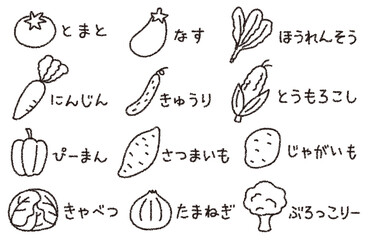 とまと
なす
ほうれんそう
にんじん
きゅうり
とうもろこし
ぴーまん
さつまいも
じゃがいも
きゃべつ
たまねぎ
ぶろっこりー